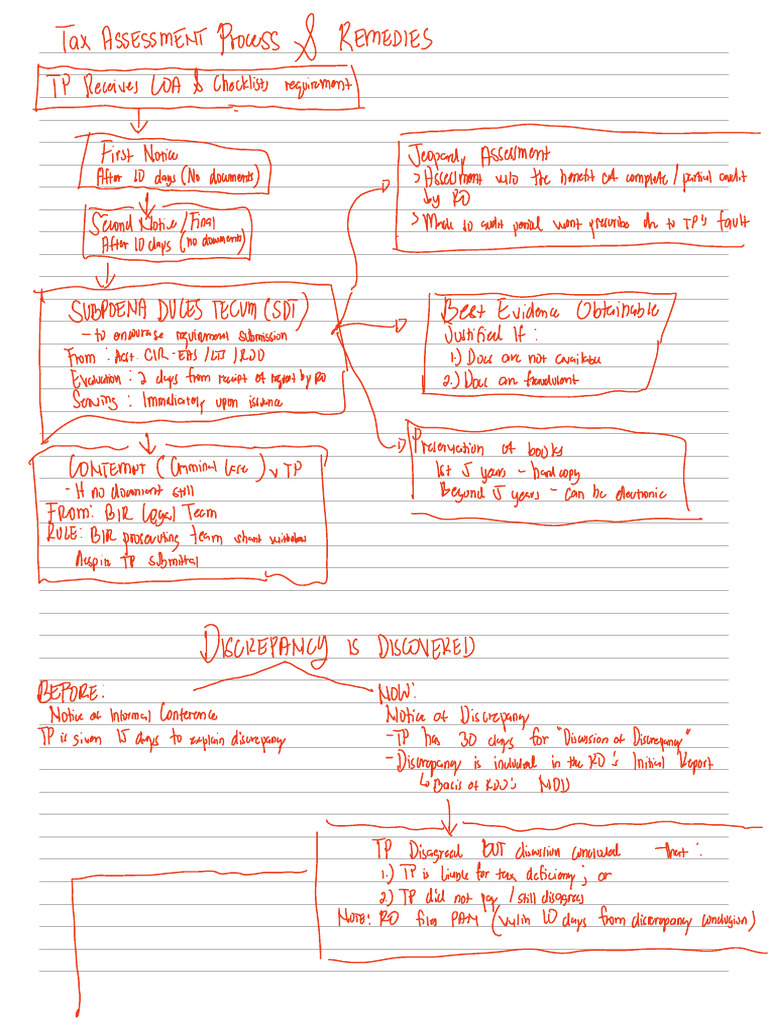 TAX ASSESSMENT PROCESS & REMEDIES
TP RECEIVES LOA & Checklists requirement
FIRST NOTICE
After 10 days (No documents)
Second Notice / Final
After 10 days (no documents)
SUBPOENA DUCES TECUM (SDT)
- to encourage requirement submission
From : Asst. CIR - EAS / LT / RDO
Evaluation : 2 days from receipt of request by RO
Serving : Immediately upon issuance
CONTEMPT (Criminal Case) v TP
- If no document still
FROM: BIR Legal Team
RULE: BIR prosecuting team shant withdraw
despite TP submittal
Jeopardy Assessment
> Assessment w/o the benefit of complete / partial audit
by RO
> Made so audit period wont prescribe due to TP's fault
Best Evidence Obtainable
Justified If :
1.) Docs are not available
2.) Docs are fraudulent
Preservation of books
1st 5 years - hardcopy
Beyond 5 years - can be electronic
DISCREPANCY IS DISCOVERED
BEFORE:
Notice of Informal Conference
TP is given 15 days to explain discrepancy
NOW:
Notice of Discrepancy
- TP has 30 days for "Discussion of Discrepancy"
- Discrepancy is included in the RO's Initial Report
↳ Basis of RDO's NOD
TP Disagreed BUT discussion concluded that :
1.) TP is liable for tax deficiency; or
2.) TP did not pay / still disagrees
NOTE: RO files PAN (w/in 10 days from discrepancy conclusion)